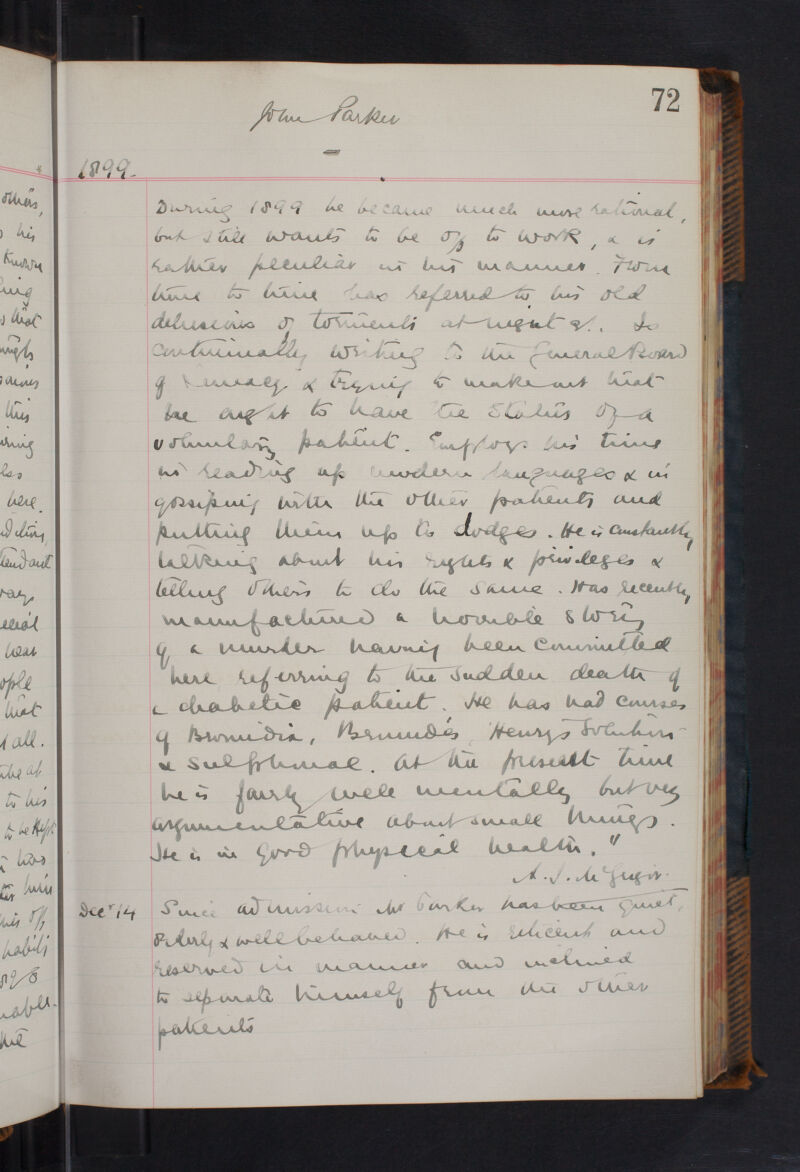 72
John Parker
1899.
During 1899 he became much more rational,
but still wants to be off to work, & is
rather peculiar in his manner. From
time to time has referred to his old
delusions of torments at night &c. Is
continually writing to the General Board
of Lunacy & trying to make out that
he ought to have the status of a
voluntary patient. Employs his time
in reading up modern languages & in
gossiping with the other patients and
putting them up to dodges. He is constantly
talking about his rights & privileges &
telling others to do the same. Has recently
manufactured a horrible story
of a murder having been committed
here referring to the sudden death of
a diabetic patient. He has had courses
of Bromidia, Bromides, Henry's Solution
& Sulphonal. At the present time
he is fairly well mentally but very
argumentative about small things.
He is in good physical health."
A. J. McGregor.
Decr 14 Since admission Mr Parker has been quiet,
orderly & well behaved. He is reticent and
reserved in manner and inclined
to separate himself from the other
patients
others,
his
known
that
this
here.
tendant
people
that
all.
to his
to be kept
has
his off
habits
the